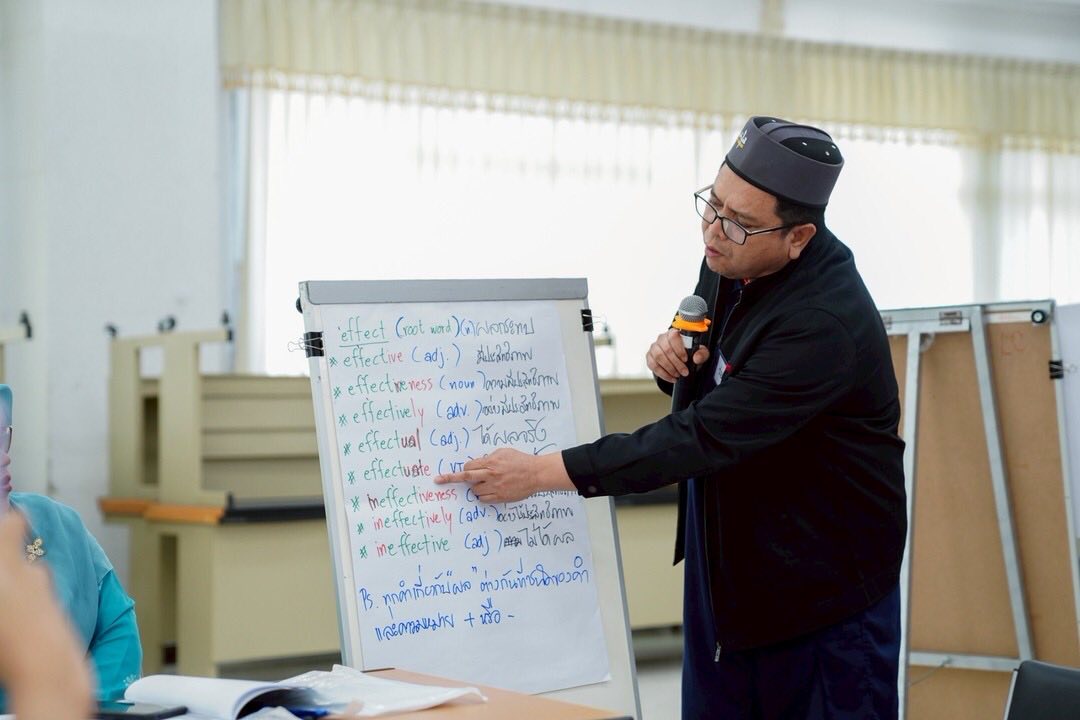 effect (root word)(n) ผลกระทบ
* effective (adj.) มีประสิทธิภาพ
* effectiveness (noun) ความมีประสิทธิภาพ
* effectively (adv.) อย่างมีประสิทธิภาพ
* effectual (adj.) ได้ผลจริง
* effectuate (VT
* ineffectiveness (
* ineffectively (adv.) อย่างไร้ประสิทธิภาพ
* ineffective (adj) ไม่ได้ผล
Ps. ทุกคำเกี่ยวกับ"ผล" ต่างกันที่ชนิดของคำ
และความหมาย + หรือ -